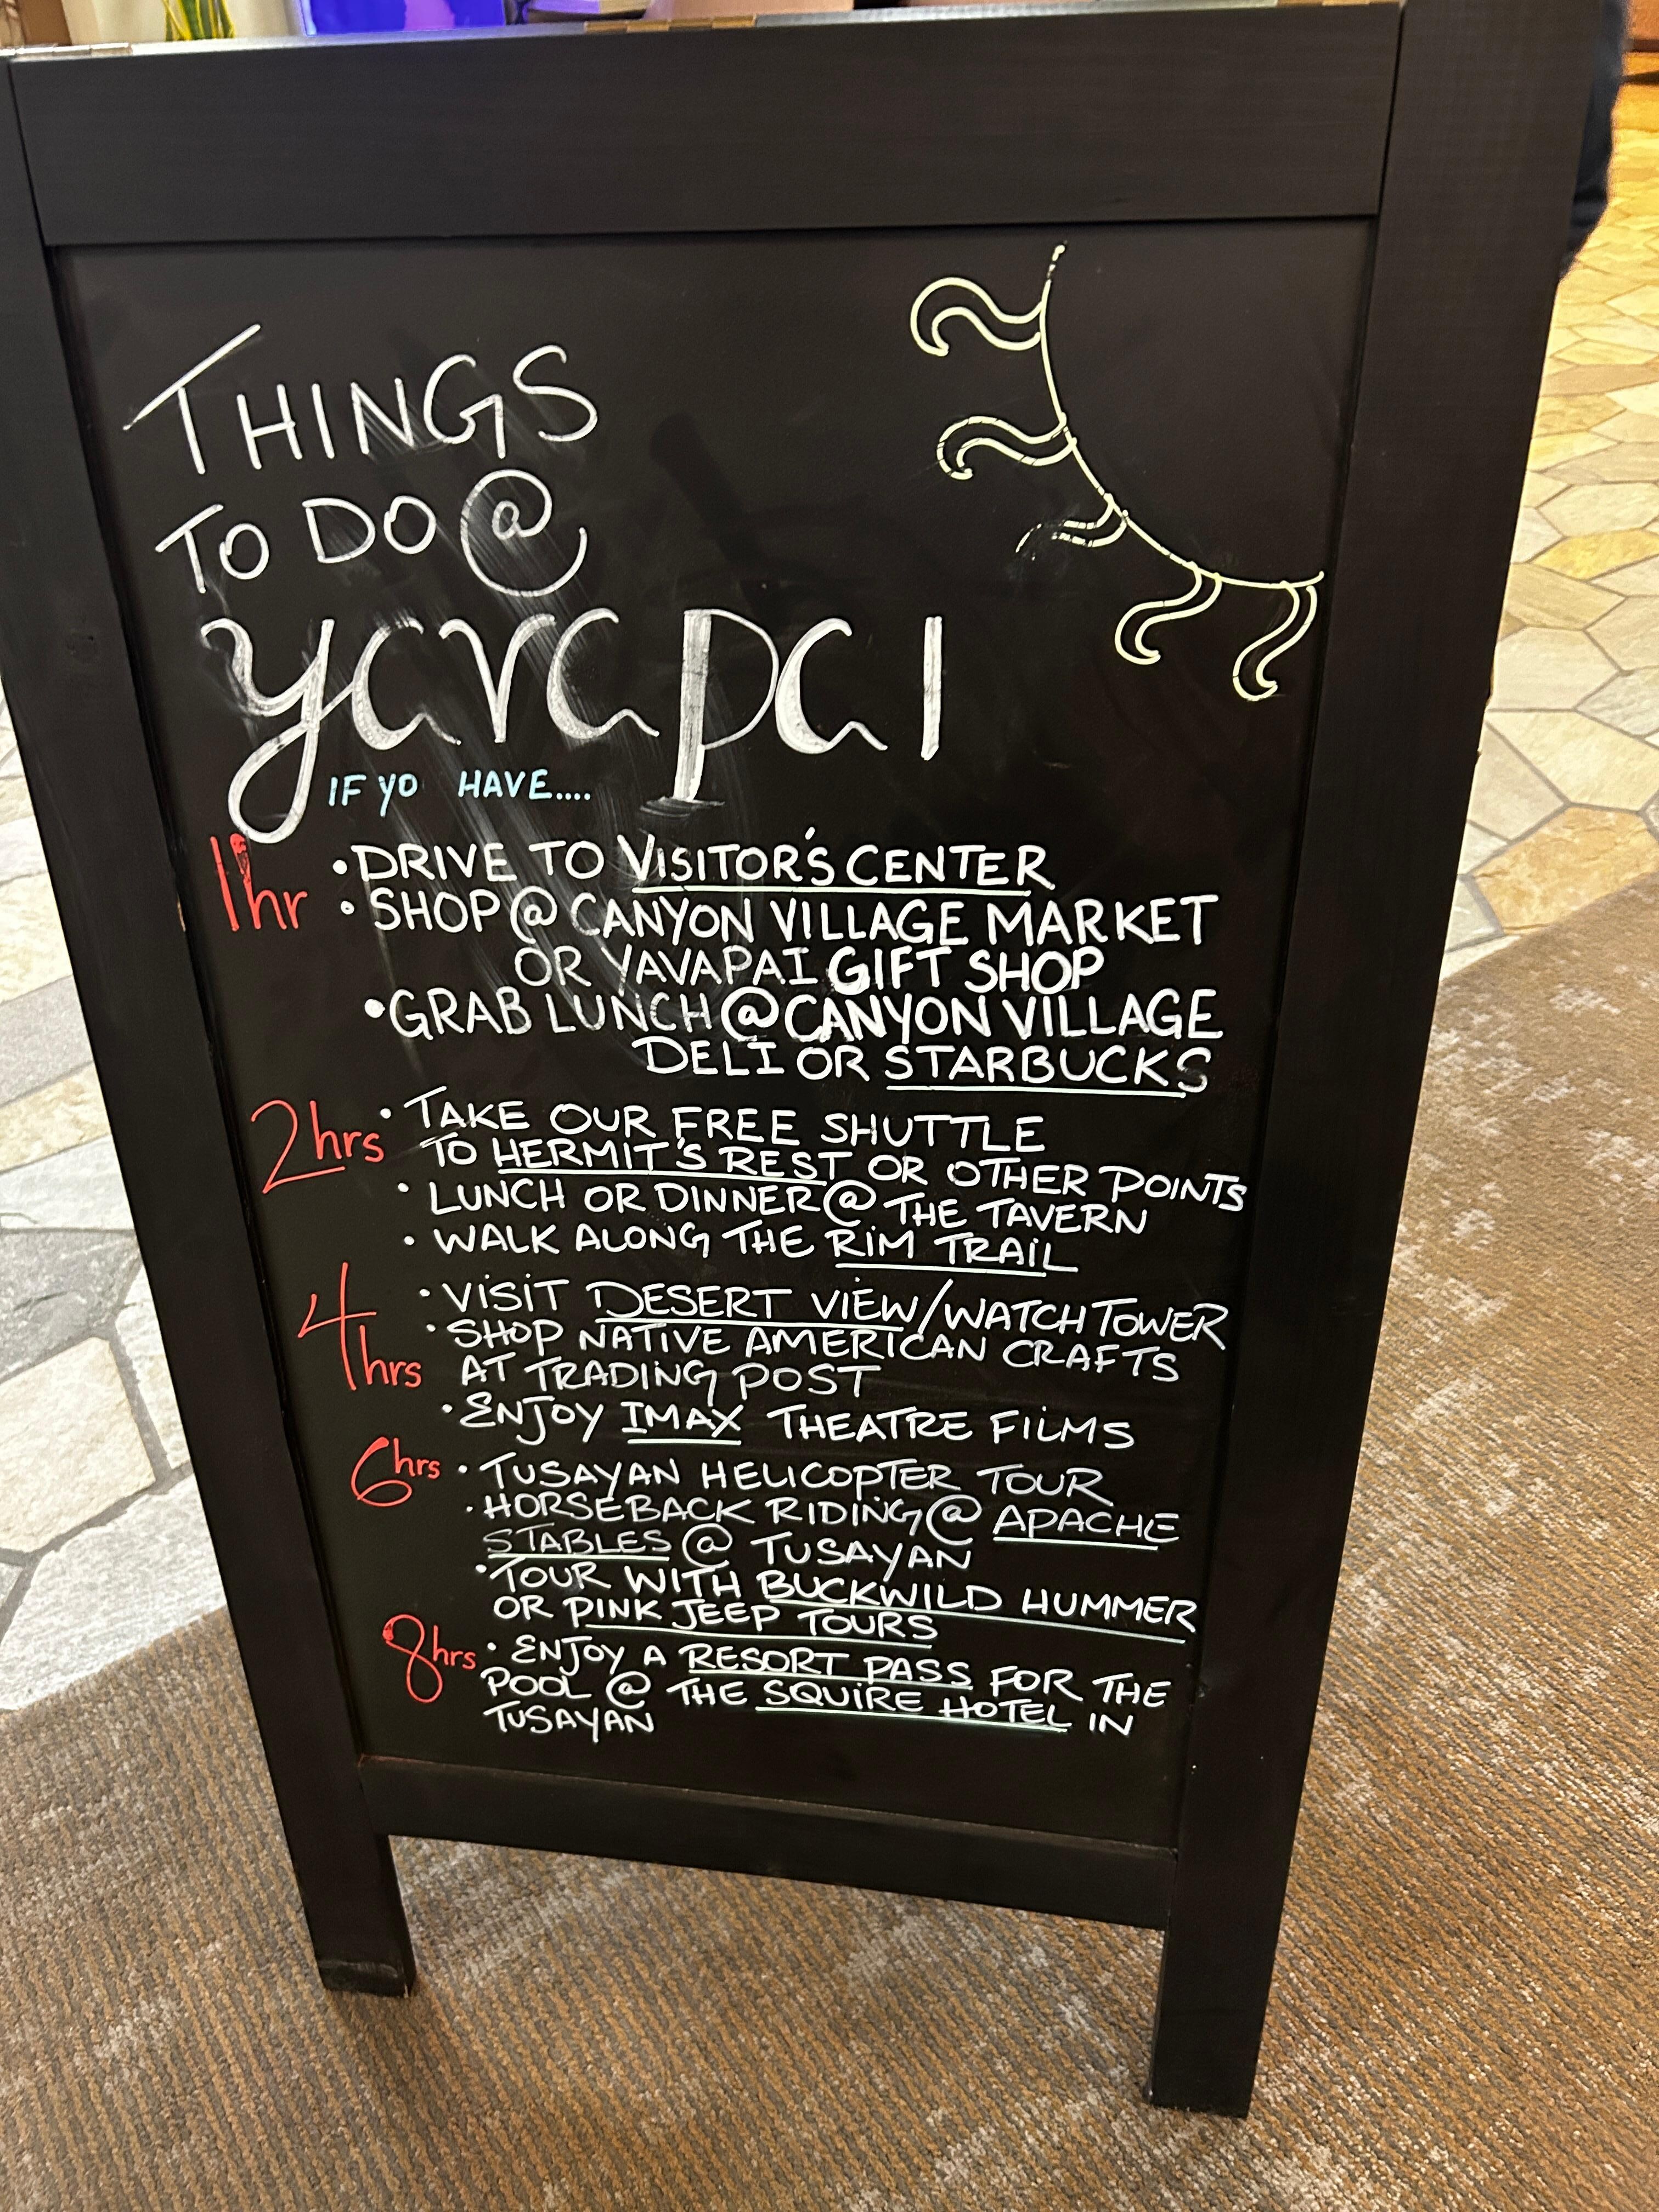 THINGS
TO DO @
yavapai
IF YO HAVE....
1hr
• DRIVE TO VISITOR'S CENTER
• SHOP @ CANYON VILLAGE MARKET
OR YAVAPAI GIFT SHOP
• GRAB LUNCH @ CANYON VILLAGE
DELI OR STARBUCKS
2hrs
• TAKE OUR FREE SHUTTLE
TO HERMIT'S REST OR OTHER POINTS
• LUNCH OR DINNER @ THE TAVERN
• WALK ALONG THE RIM TRAIL
4hrs
• VISIT DESERT VIEW/WATCHTOWER
• SHOP NATIVE AMERICAN CRAFTS
AT TRADING POST
• ENJOY IMAX THEATRE FILMS
6hrs
• TUSAYAN HELICOPTER TOUR
• HORSEBACK RIDING @ APACHE
STABLES @ TUSAYAN
• TOUR WITH BUCKWILD HUMMER
OR PINK JEEP TOURS
8hrs
• ENJOY A RESORT PASS FOR THE
POOL @ THE SQUIRE HOTEL IN
TUSAYAN